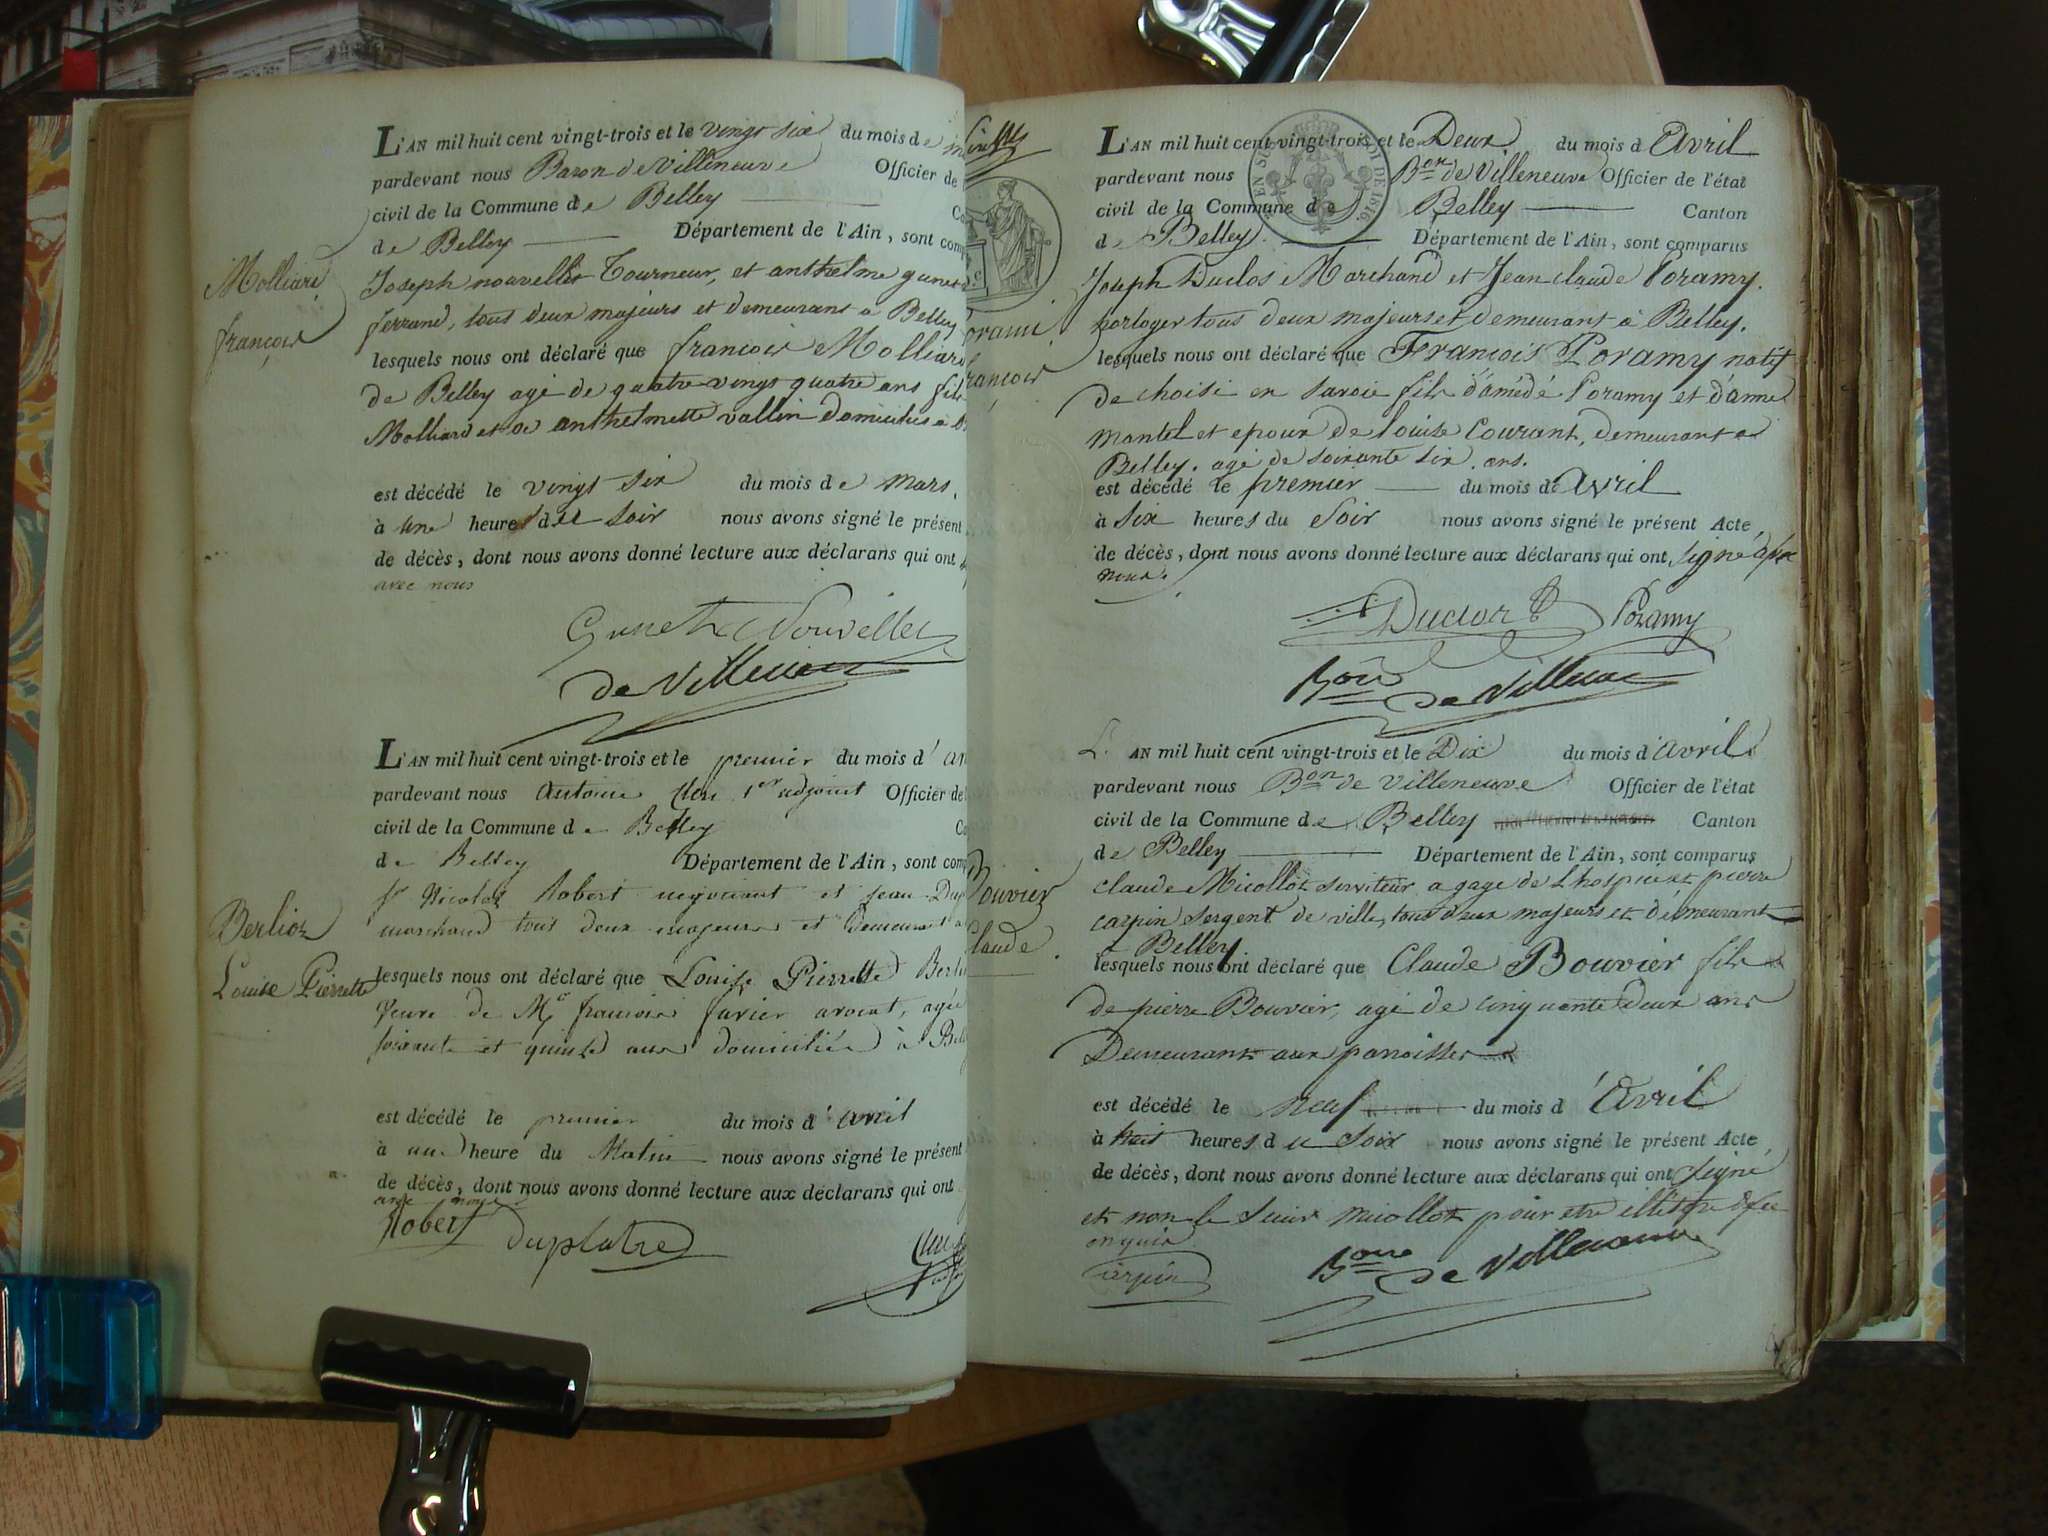 L'AN mil huit cent vingt-trois et le vingt six du mois de
pardevant nous Baron de Villeneuve Officier de
civil de la Commune de Belley
de Belley Département de l'Ain, sont comp
Joseph nouvellet Tourneur, et anthelme
ferrand, tous deux majeurs et demeurant a Belley
lesquels nous ont déclaré que françois Molliard
de Belley agé de quatre-vingt quatre ans fils
Molliard et de anthelmette vallin domiciliés à
est décédé le vingt six du mois de mars,
à une heures du soir nous avons signé le présent
de décès, dont nous avons donné lecture aux déclarans qui ont
avec nous
Gunet Nouvellet
de Villeneuve
Molliard
françois
L'AN mil huit cent vingt-trois et le premier du mois d'
pardevant nous Antoine 1er adjoint Officier de
civil de la Commune de Belley
de Belley Département de l'Ain, sont comp
Sr Nicolas Robert negociant et jean Dup
marchand tous deux majeurs et demeurant a
lesquels nous ont déclaré que Louise Pierrette Berli
Veuve de Me francois favier avocat, agée
soixante et quinze ans domiciliée à Bell
est décédé le premier du mois d'avril
à une heure du Matin nous avons signé le présent
de décès, dont nous avons donné lecture aux déclarans qui ont
avec nous
Robert duplatre
Berlioz
Louise Pierrette
L'AN mil huit cent vingt-trois et le Deux du mois d avril
pardevant nous Bon de Villeneuve Officier de l'état
civil de la Commune de Belley Canton
de Belley. Département de l'Ain, sont comparus
Joseph Duclos Marchand et Jean claude Poramy.
horloger tous deux majeurs et demeurant à Belley.
lesquels nous ont déclaré que François Poramy natif
de choisi en Savoie fils d'amédé Poramy et d'anne
mantel et epoux de louise Courant, demeurant a
Belley. agé de soixante six. ans.
est décédé le premier du mois d avril
à six heures du Soir nous avons signé le présent Acte,
de décès, dont nous avons donné lecture aux déclarans qui ont signé avec
nous.
Duclos Poramy
Bon de Villeneuve
orami
rançois
L'AN mil huit cent vingt-trois et le Dix du mois d'avril
pardevant nous Bon de Villeneuve Officier de l'état
civil de la Commune de Belley Canton
de Belley Département de l'Ain, sont comparus
claude Micollot serviteur a gage de Lhospice et pierre
carpin sergent de ville, tous deux majeurs et demeurant
a Belley
lesquels nous ont déclaré que Claude Bouvier fils
de pierre Bouvier, agé de cinquante deux ans
Demeurant aux paroisses
est décédé le neuf du mois d'avril
à huit heures du Soir nous avons signé le présent Acte,
de décès, dont nous avons donné lecture aux déclarans qui ont signé
et non le Sieur Micollot pour etre illitere de ce
enquis
carpin
Bon de Villeneuve
Bouvier
laude